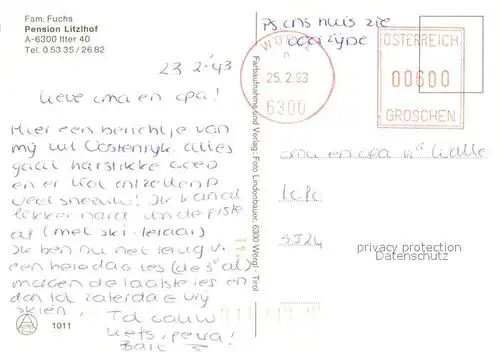 Fam. Fuchs
Pension Litzlhof
A-6300 Itter 40
Tel. 0 53 35 / 26 82
Ps ons huis zie
ooerzijde
WÖRGL
n
25.2.93
6300
ÖSTERREICH
00600
GROSCHEN
23 2·'93
lieve oma en opa!
Hier een berichtje van
mij uit Oostenrijk alles
gaat hartstikke goed
en er ligt ontzettend
veel sneeuw! Ik kan al
lekker hard van de piste
af (met ski-leraar)
Ik ben nu net terug v.
een hele dag les (de 3e al)
morgen de laatste les en
dan t/d zaterdag vrij
skiën!
Tot gauw
liefs,
Bart
oma en opa
1011
Farbaufnahme und Verlag: Foto Lindenbauer, 6300 Wörgl - Tirol
privacy protection
Datenschutz